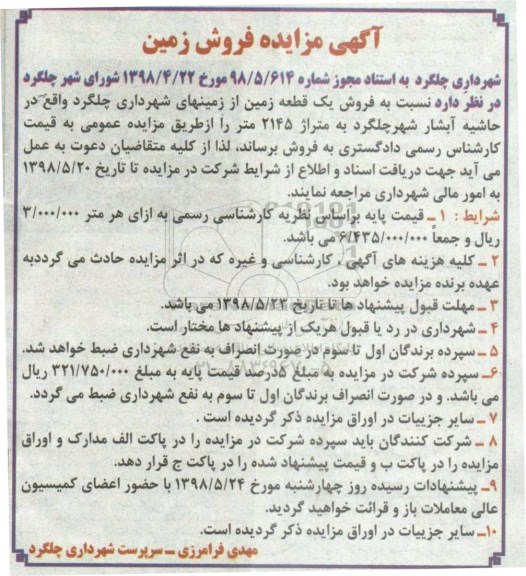 آگهی مزایده فروش زمین
شهرداری چلگرد به استناد مجوز شماره ۹۸/۵/۶۱۴ مورخ ۱۳۹۸/۴/۲۲ شورای شهر چلگرد
در نظر دارد نسبت به فروش یک قطعه زمین از زمینهای شهرداری چلگرد واقع در
حاشیه آبشار شهرچلگرد به متراژ ۲۱۴۵ متر را ازطریق مزایده عمومی به قیمت
کارشناس رسمی دادگستری به فروش برساند، لذا از کلیه متقاضیان دعوت به عمل
می آید جهت دریافت اسناد و اطلاع از شرایط شرکت در مزایده تا تاریخ ۱۳۹۸/۵/۲۰
به امور مالی شهرداری مراجعه نمایند.
شرایط : ۱ ــ قیمت پایه براساس نظریه کارشناسی رسمی به ازای هر متر ۳/۰۰۰/۰۰۰
ریال و جمعاً ۶/۴۳۵/۰۰۰/۰۰۰ می باشد.
۲ ــ کلیه هزینه های آگهی ، کارشناسی و غیره که در اثر مزایده حادث می گرددبه
عهده برنده مزایده خواهد بود.
۳ ــ مهلت قبول پیشنهاد ها تا تاریخ ۱۳۹۸/۵/۲۳ می باشد.
۴ ــ شهرداری در رد یا قبول هریک از پیشنهاد ها مختار است.
۵ ــ سپرده برندگان اول تا سوم در صورت انصراف به نفع شهرداری ضبط خواهد شد.
۶ــ سپرده شرکت در مزایده به مبلغ ۵درصد قیمت پایه به مبلغ ۳۲۱/۷۵۰/۰۰۰ ریال
می باشد. و در صورت انصراف برندگان اول تا سوم به نفع شهرداری ضبط می گردد.
۷ ــ سایر جزییات در اوراق مزایده ذکر گردیده است .
۸ ــ شرکت کنندگان باید سپرده شرکت در مزایده را در پاکت الف مدارک و اوراق
مزایده را در پاکت ب و قیمت پیشنهاد شده را در پاکت ج قرار دهد.
۹ــ پیشنهادات رسیده روز چهارشنبه مورخ ۱۳۹۸/۵/۲۴ با حضور اعضای کمیسیون
عالی معاملات باز و قرائت خواهید گردید.
۱۰ــ سایر جزییات در اوراق مزایده ذکر گردیده است.
مهدی فرامرزی ــ سرپرست شهرداری چلگرد